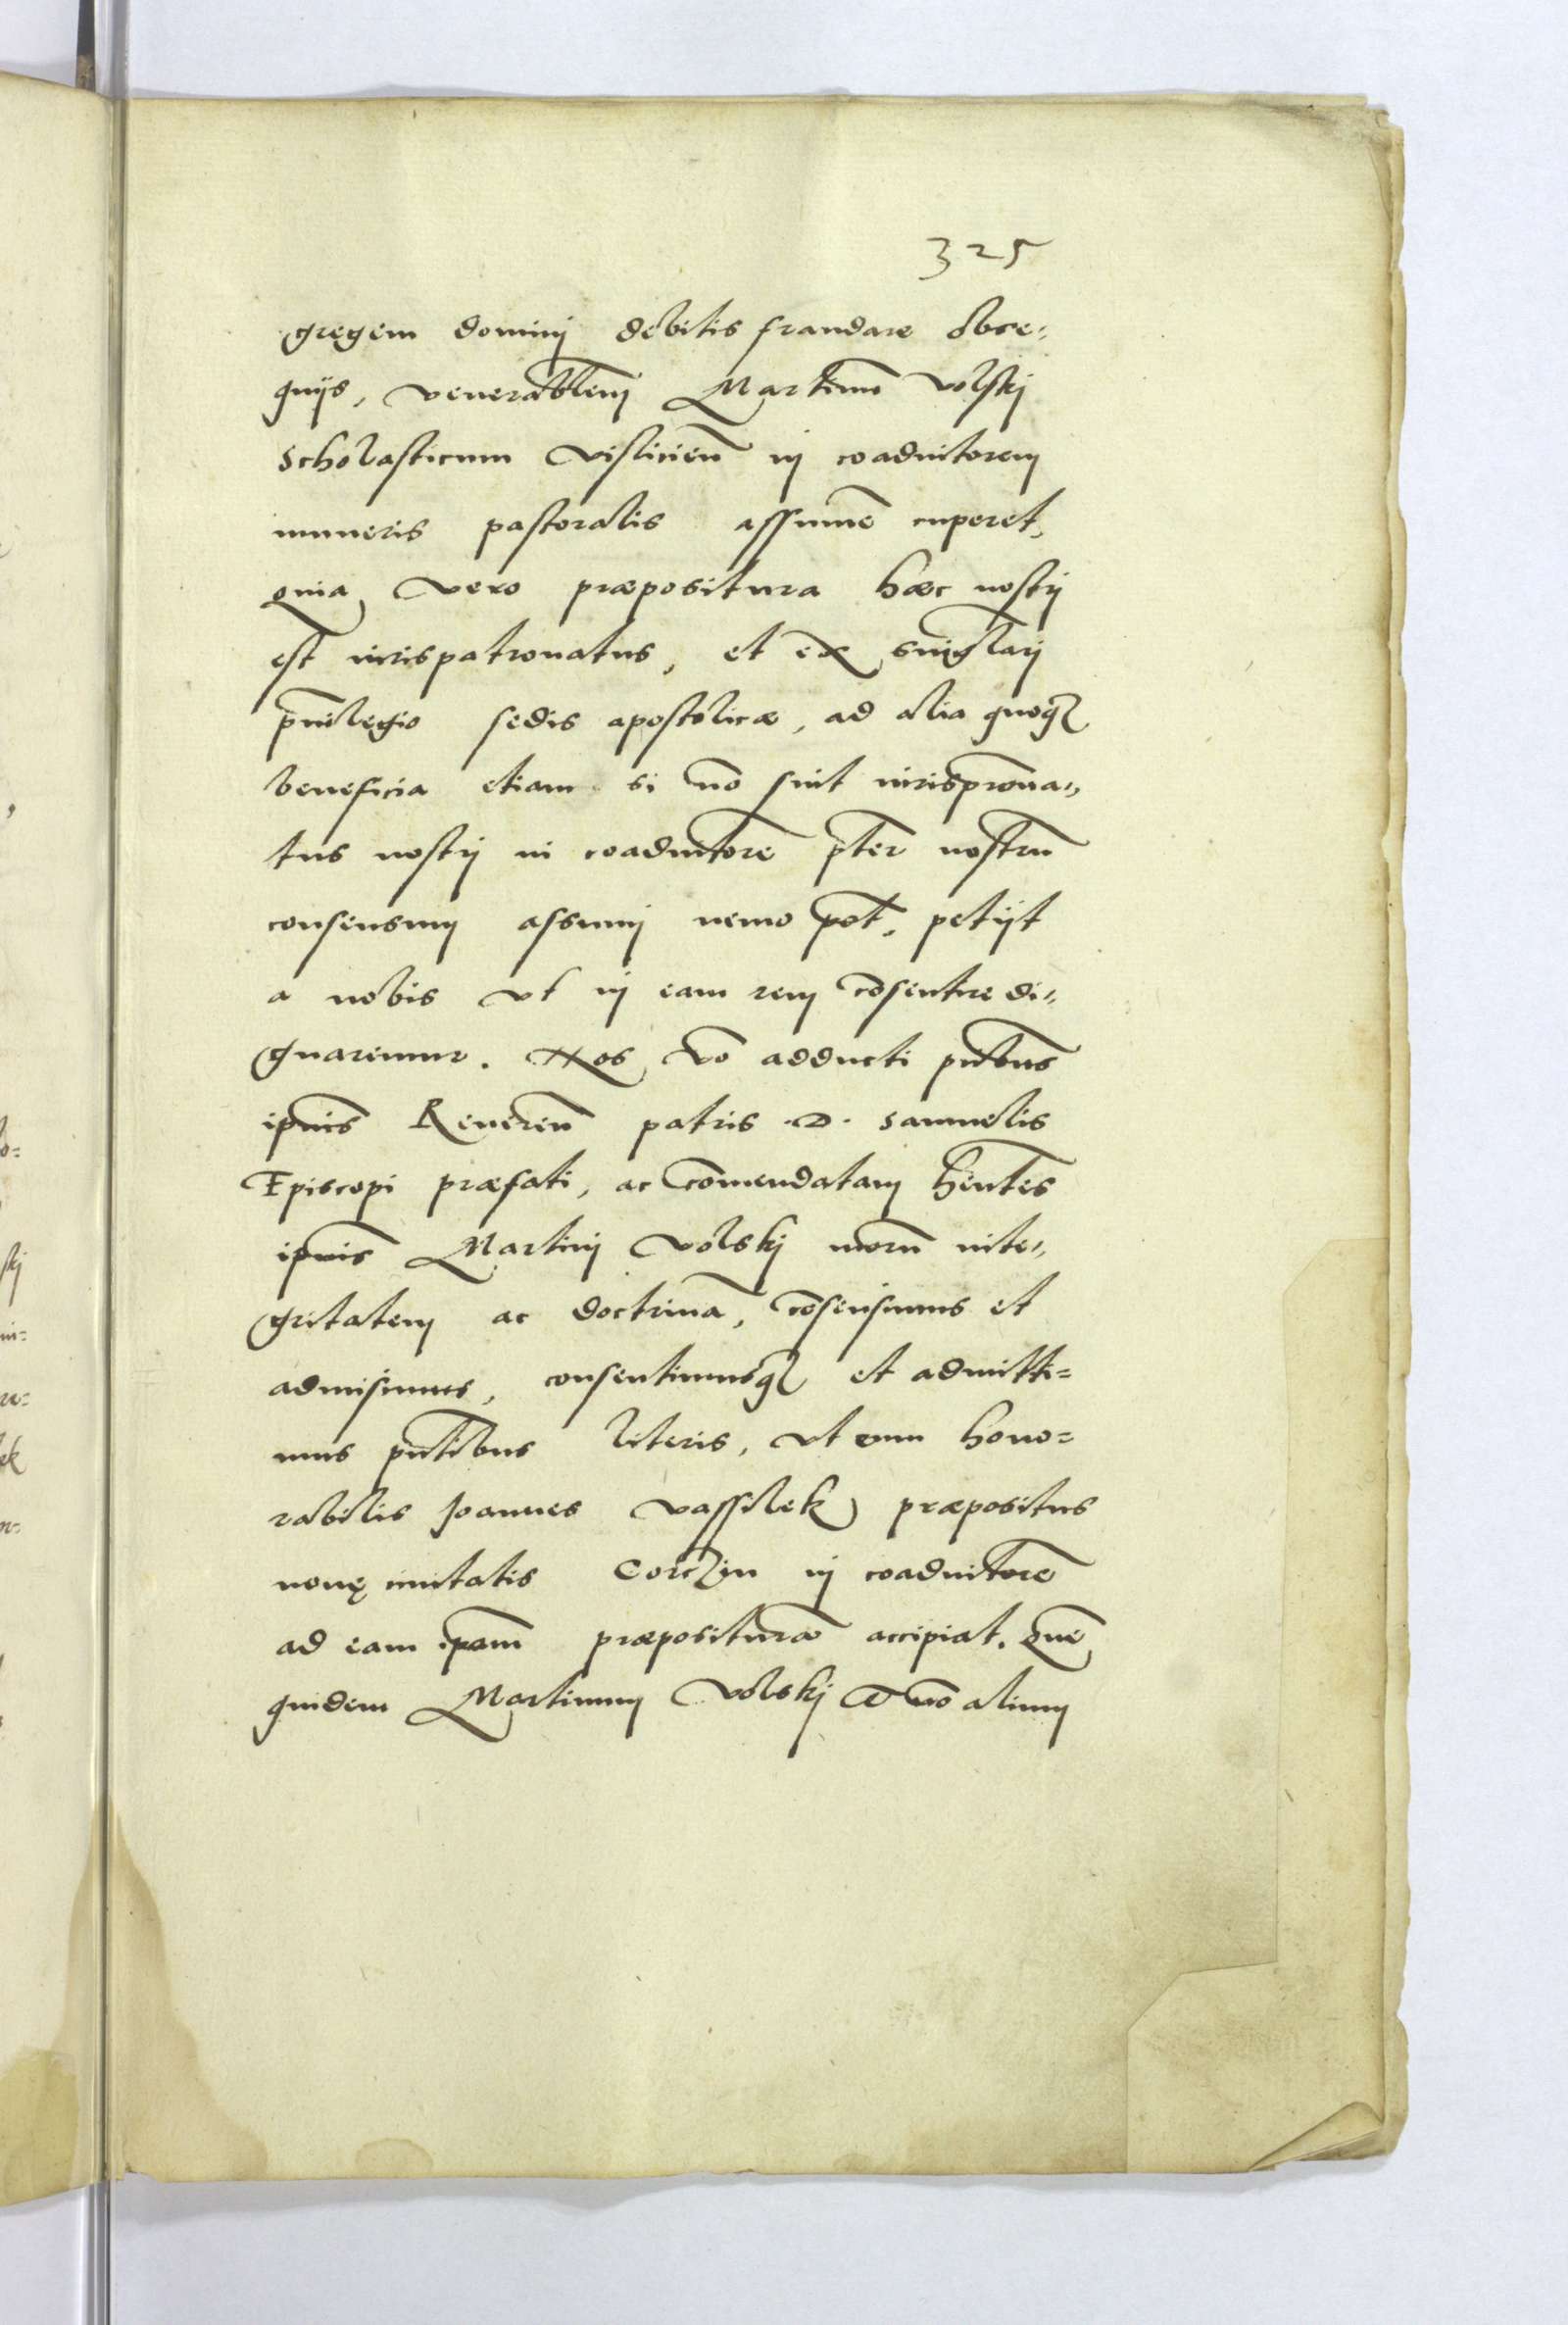 325
gregem dominj debitis fraudare obse„
quijs, venerabilem Martinum Volskj
scholasticum Visliciеn̄ in coadiutorem
muneris pastoralis assume͂ cuperet,
quia vero præpositura hæc nostrj
est iurispatronatus, et ex singlarj
priuilegio sedis apostolicæ, ad alia quoq3
beneficia etiam si nō sint iurisprona„
tus nostrj in coadiutorē p̄ter nostrū
consensum assumj nemo pōt, petijt
a nobis vt in eam rem cōsentire di„
gnaremur. Nos v̄o adducti p̄cibus
ip̄ius Reueren̄ patris .D. Samuelis
Episcopi præfati, ac cōmendatam hēntes
ip̄ius Martinj Volskj morū inte„
gritatem ac doctrinā, cōsensimus et
admisimus, consentimusq3 et admitti=
mus p̄ntibus literis, vt eum hono=
rabilis Joannes Vassilek præpositus
nouę ciuitatis Corczin in coadiutorē
ad eam ip̄am præposituram accipiat. Quē
quidem Martinum Volskj et nō alium